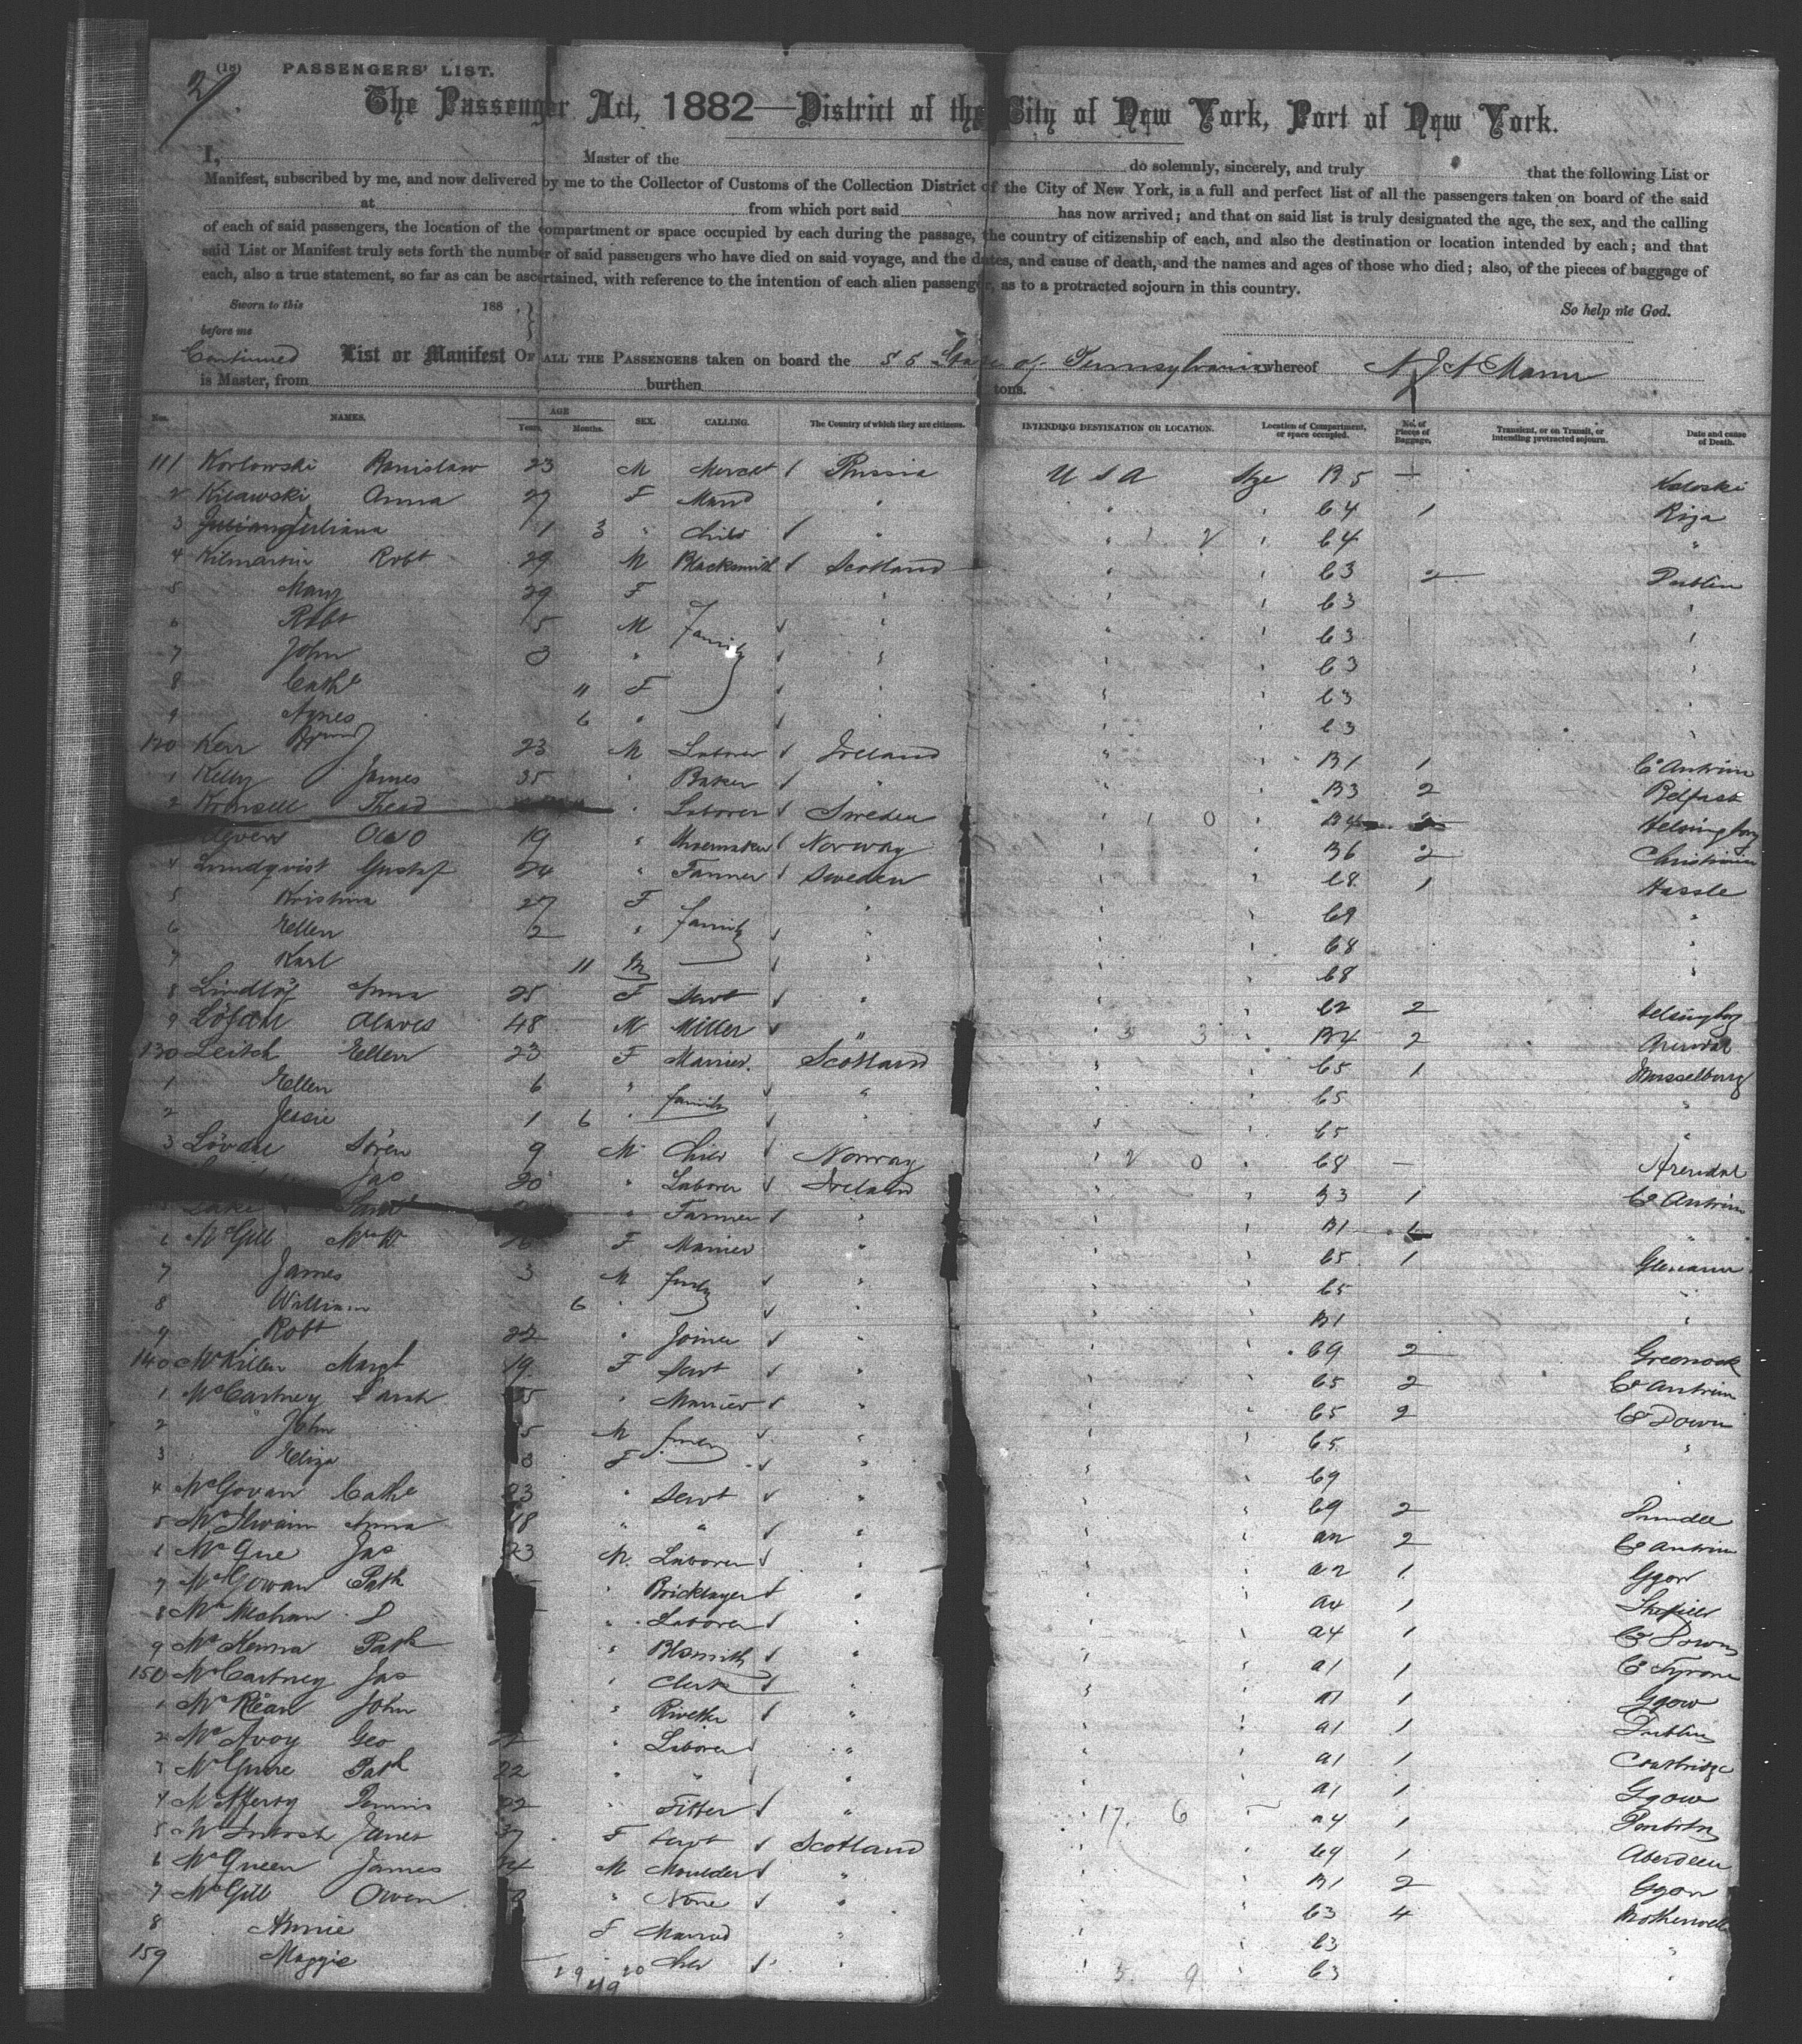 (18) PASSENGERS' LIST.
2
The Passenger Act, 1882—District of the City of New York, Port of New York.
I, Master of the do solemnly, sincerely, and truly that the following List or
Manifest, subscribed by me, and now delivered by me to the Collector of Customs of the Collection District of the City of New York, is a full and perfect list of all the passengers taken on board of the said
at from which port said has now arrived; and that on said list is truly designated the age, the sex, and the calling
of each of said passengers, the location of the compartment or space occupied by each during the passage, the country of citizenship of each, and also the destination or location intended by each; and that
said List or Manifest truly sets forth the number of said passengers who have died on said voyage, and the dates, and cause of death, and the names and ages of those who died; also, of the pieces of baggage of
each, also a true statement, so far as can be ascertained, with reference to the intention of each alien passenger, as to a protracted sojourn in this country.
Sworn to this 188 So help me God.
before me
Continued List or Manifest OF ALL THE PASSENGERS taken on board the S S State of Pennsylvania whereof A J A Mann
is Master, from burthen tons.
Nos. NAMES. AGE Years. Months. SEX. CALLING. The Country of which they are citizens. INTENDING DESTINATION OR LOCATION. Location of Compartment, or space occupied. No. of Pieces of Baggage. Transient, or on Transit, or intending protracted sojourn. Date and cause of Death.
111 Korlowski 23 M Russia U S A Stge B5 —
2 Anna 27 F " b4 1 Riga
3 Juliana 1 3 " Child " b4 "
4 Kilmartin Robt 29 M Blacksmith Scotland b3 2 Dublin
5 Mary 29 F b3
6 Robt 5 M Family b3
7 John 3 " b3
8 Cathe 11 F b3
9 Agnes 6 " b3
120 Kerr 23 M Laborer Ireland B1 1 Co Antrim
1 Kelly James 35 Baker " B3 2 Belfast
2 Laborer Sweden B4 Helsingborg
19 Shoemaker Norway B6 2 Christiania
4 Lundqvist Gustaf 24 Farmer Sweden b8 1 Hassle
5 Kristina 27 F b9
6 Ellen 2 " family b8
7 Karl 11 M b8
8 Anna 25 F Servt b2 2 Helsingborg
9 48 M Miller " B4 2 Arendal
130 Leitch Ellen 23 F Married Scotland b5 1 Musselburg
1 Ellen 6 " family " b5
2 Jessie 1 6 b5
3 Lövdal Sören 9 M Child Norway b8 — Arendal
Jas 20 " Laborer Ireland B3 1 Co Antrim
Farmer B1
6 McGill F Married b5 1
7 James 3 M b5
8 William 6 B1
9 Robt 22 Joiner b9 2 Greenock
140 McKillen Margt 19 F Servt b5 2 Co Antrim
1 McCartney Sarah 35 " Married b5 2 Co Down
2 John 5 M family b5
3 Eliza 3 F b9
4 McGovan Cathe 23 " Servt b9 2 Dundee
5 McIlwain Anna 18 " " a2 2 Co Antrim
6 Jas 23 M Laborer a2 1 Ggow
7 McGowan Patk Bricklayer a4 1 Sheffield
8 McMahan Laborer a4 1 Co Down
9 McKenna Patk Blsmith a1 1 Co Tyrone
150 McCartney Jas Clerk a1 1 Ggow
1 John Riveter a1 1 Dublin
2 McAvoy Geo 22 Laborer a1 1 Coatbridge
3 McGuire Patk 22 " a1 1 Ggow
4 Dennis 22 Fitter a4 1
5 McIntosh Janet 37 F Servt Scotland b9 1 Aberdeen
6 McQueen James 24 M Moulder B1 2 Ggow
7 McGill Owen " None b3 4 Motherwell
8 Annie F Married b3
159 Maggie Child b3
29 20
49